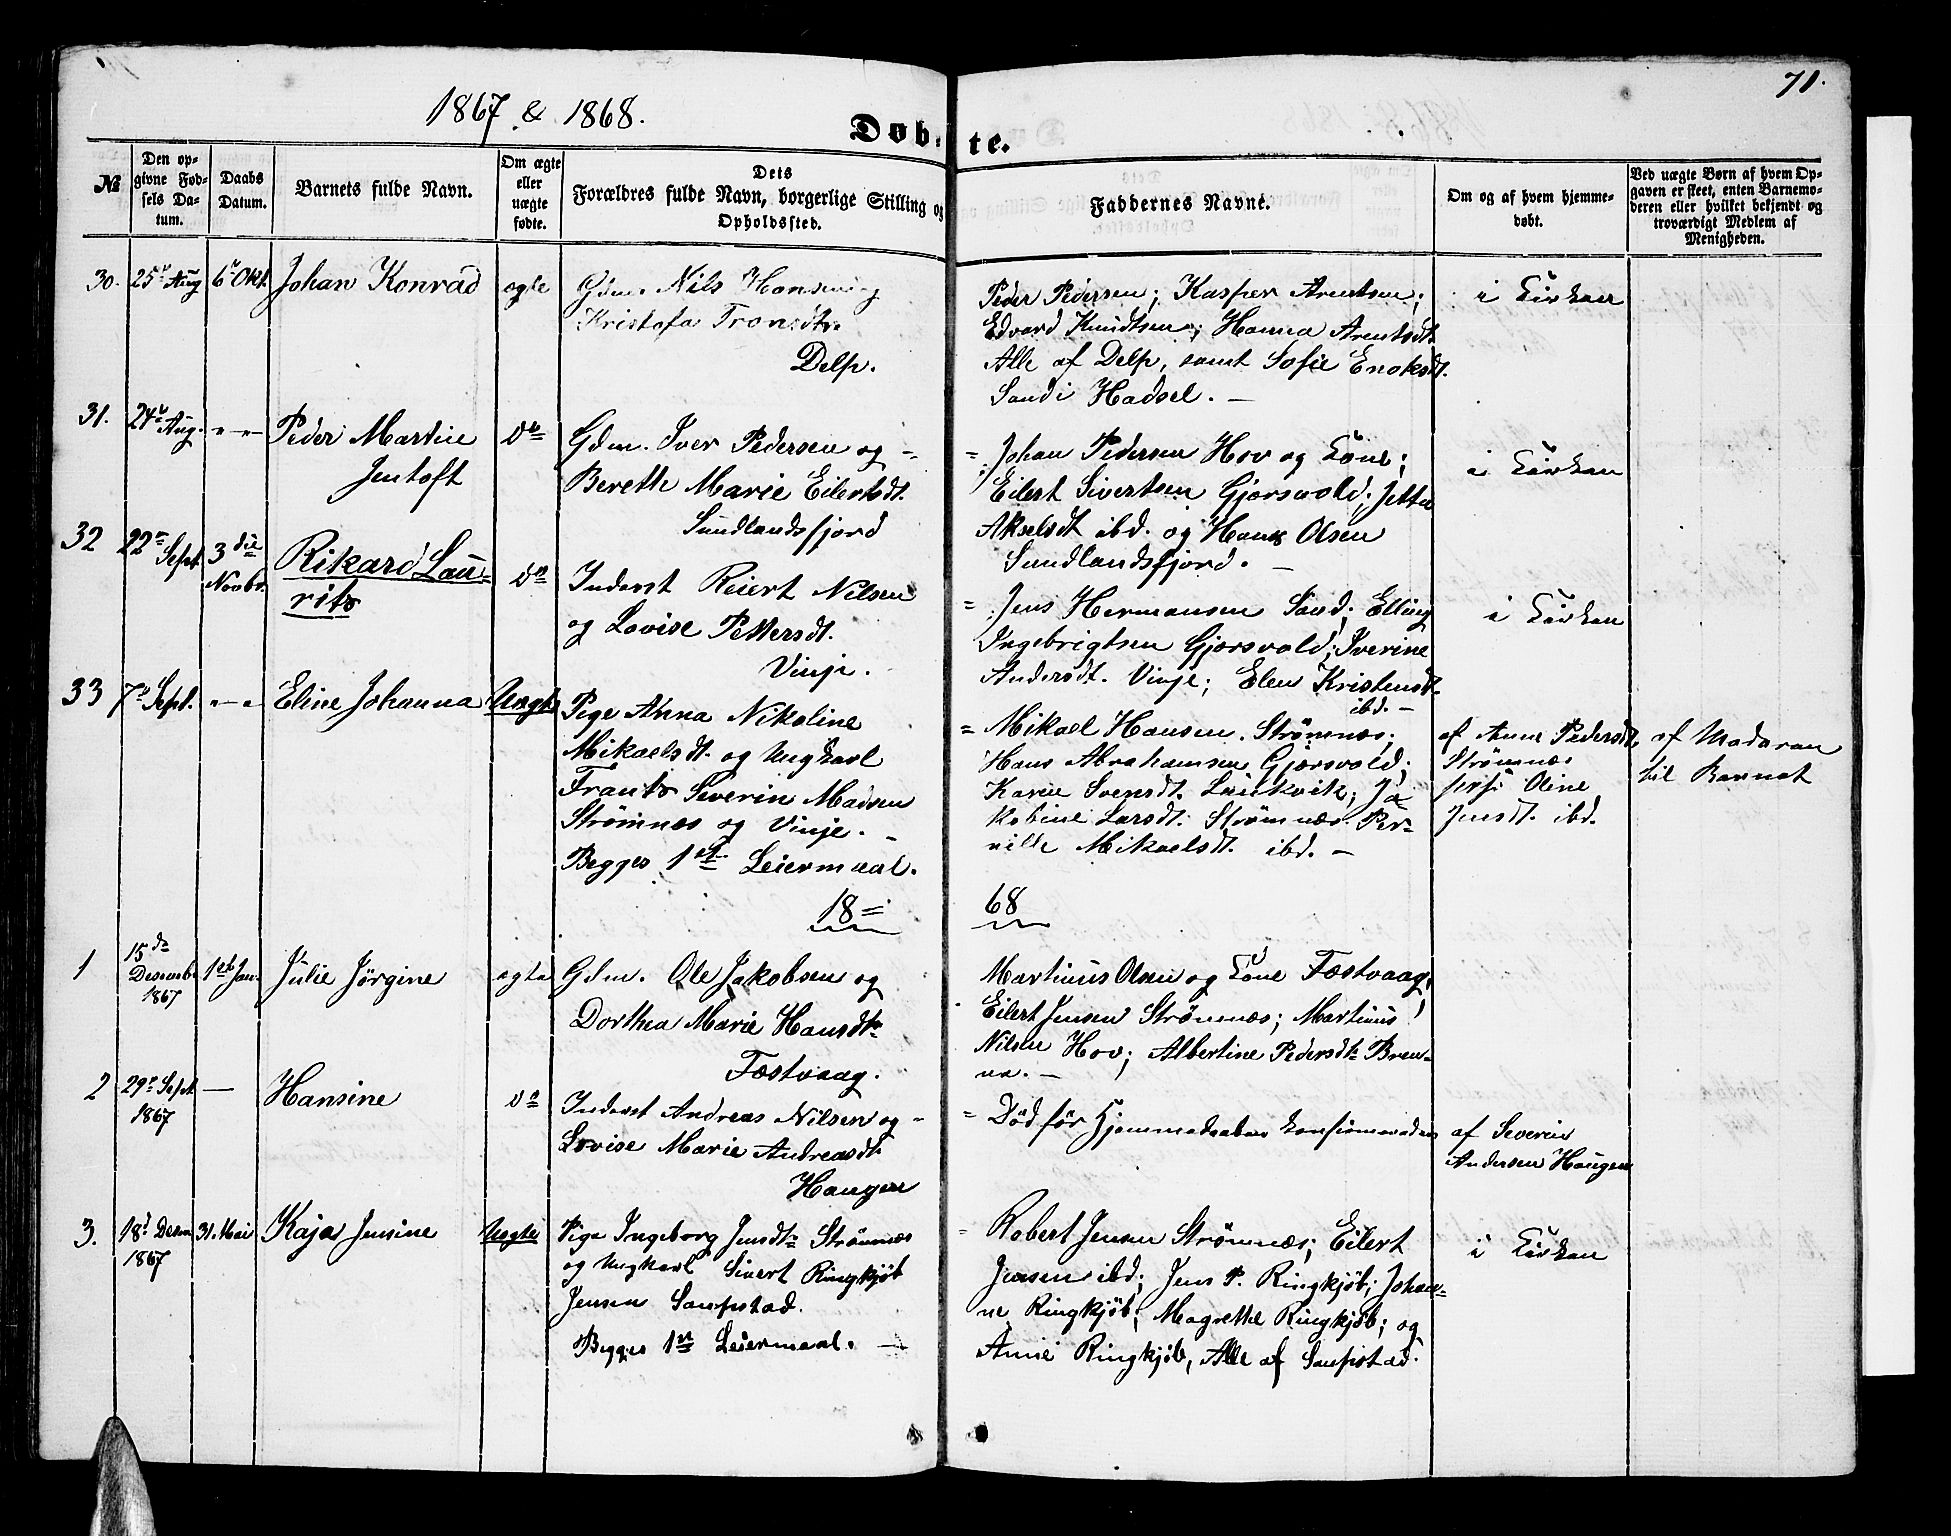 71.
1867 & 1868.
Døbte.
№
Den opgivne Fødsels Datum.
Daabs Datum.
Barnets fulde Navn.
Om ægte eller uægte fødte.
Dets Forældres fulde Navn, borgerlige Stilling og Opholdssted.
Faddernes Navne.
Om og af hvem hjemmedøbt.
Ved uægte Børn af hvem Opgaven er skeet, enten Barnemoderen eller hvilket bekjendt og troværdigt Medlem af Menigheden.
30. 25de Aug 6te Okt. Johan Konrad ægte
Gdm. Nils Hansen og
Kristofa Tronsdtr.
Delp.
Peder Pedersen; Kasper Arentsen;
Edvard Knudtsen; Hanna Arentsdt.
Alle af Delp, samt Sofie Enoksdt.
Sand i Hadsel. —
i Kirken
31. 24de Aug. "—" Peder Martin
Jentoft
do
Gdm. Iver Pedersen og -
Bereth Marie Eilertsdt.
Sundlandsfjord
= Johan Pedersen Hov og Kone;
Eilert Sivertsen Gjørsvold; Jetta
Akselsdt ibd. og Hans Olsen
Sundlandsfjord. —
i Kirken
32 22de Sept 3die
Novbr.
Rikard Lau-
rits
do
Inderst Reiert Nilsen
og Lovise Pettersdt.
Vinje.
= Jens Hermansen Sand; Elling
Ingebrigtsen Gjørsvold; Iverine
Andersdt. Vinje; Elen Kristensdt.
ibd. —
i Kirken
33 7de Sept. "—" Eline Johanna Uægte
Pige Anna Nikoline
Mikaelsdt. og Ungkarl
Frants Severin Madsen
Strømnæs og Vinje. —
Begges 1st Leiermaal.
= Mikael Hansen. Strømnæs;
Hans Abrahamsen Gjørsvold;
Karen Svensdt. Laukvik; Ja
kobine Larsdt. Strømnæs. Per-
nilde Mikaelsdt. ibd. —
af Anne Pedersdt.
Strømnæs
Oline
Jensdt. ibd.
af Moderen
til Barnet
18= 68
1 15de
Desemb.
1867
1st Jan. Julie Jørgine ægte
Gdm. Ole Jakobsen og
Dorthea Marie Hansdtr
Fæstvaag.
Martinus Olsen og Kone Fæstvaag;
Eilert Jensen Strømnæs; Martinus
Nilsen Hov; Albertine Pedersdtr Bren-
na. —
2 29de Sept
1867
— Hansine do
Inderst Andreas Nilsen og -
Lovise Marie Andreasdt.
Haugen
= Død før Hjemmedaaben konfirmeredes
af Severin
Andersen Haugen
3. 18d Desm
1867
31. Mai Kaja Jensine Uægte
Pige Ingeborg Jensdtr Strømnæs
og Ungkarl Sivert Ringkjøb
Jensen Sanpstad.
Begges 1st Leiermaal. —
= Robert Jensen Strømnæs; Eilert
Jensen ibd; Jens P. Ringkjøb; Johan-
ne Ringkjøb; Magrethe Ringkjøb; og
Anne Ringkjøb, Alle af Sanpstad.
i Kirken